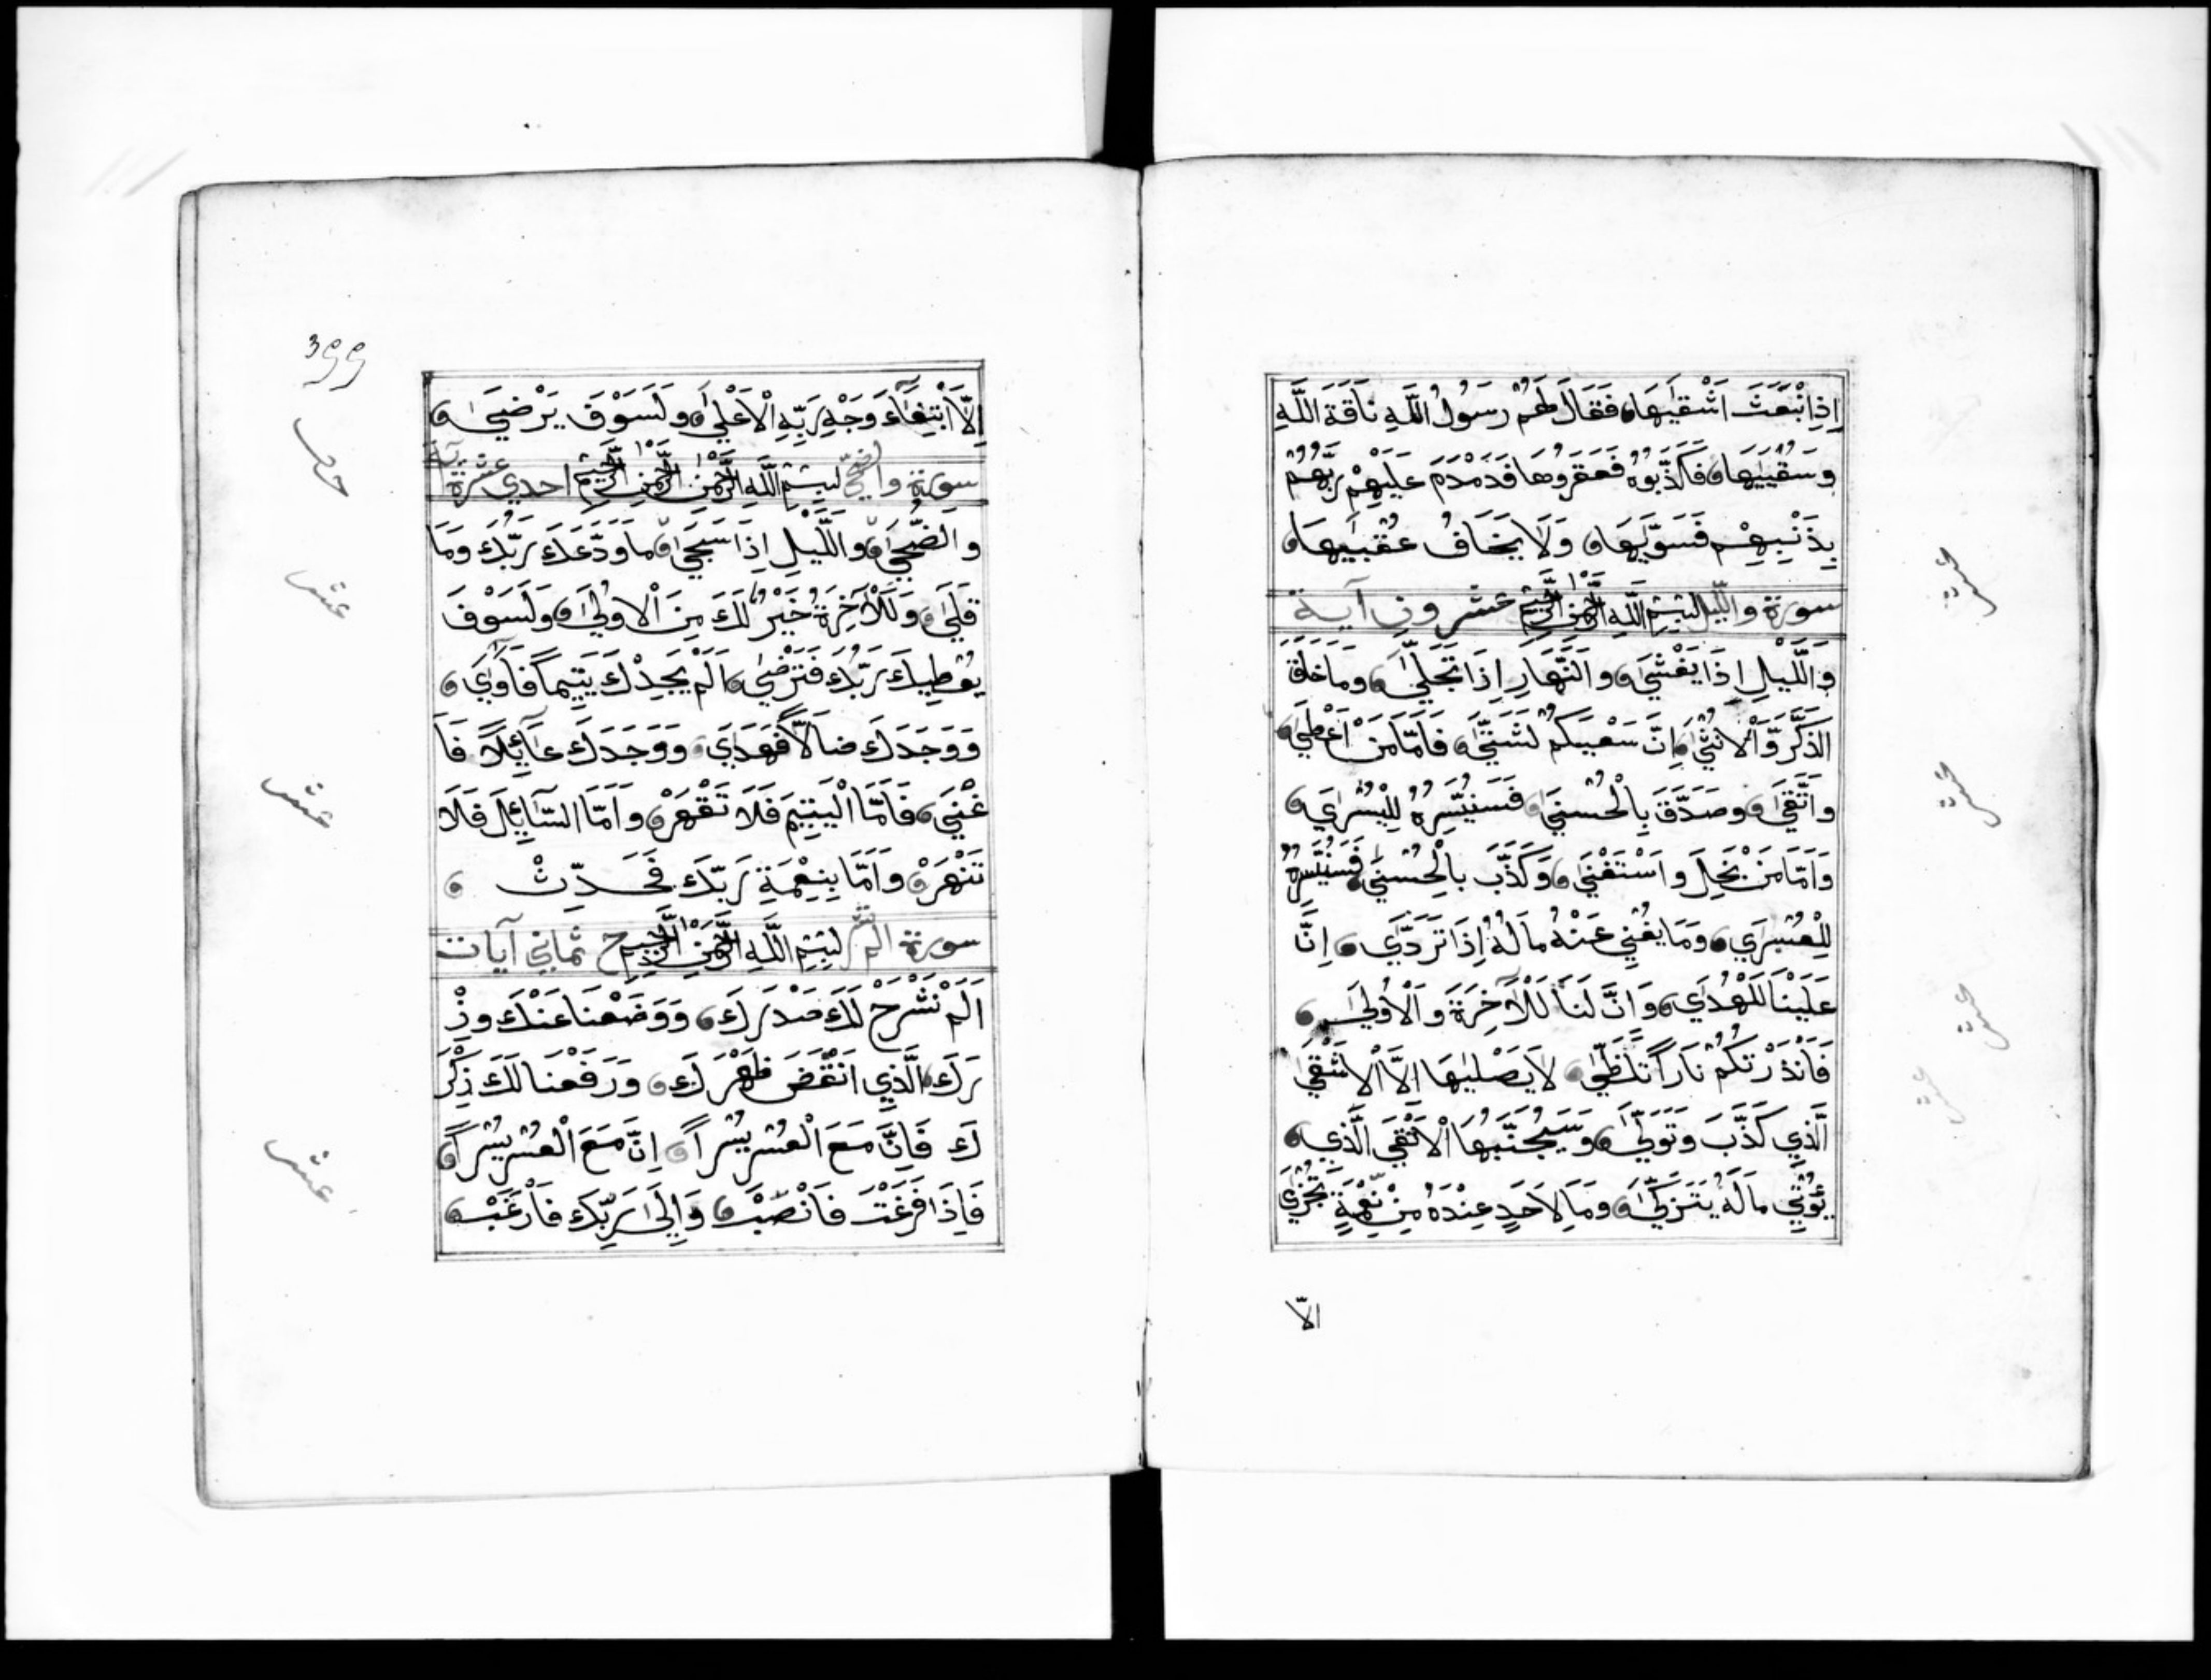 اِذِانْبَعَثَ اَشْقٰيهَا فَقَالَ لَهُمْ رَسُولُ اللَّهِ نَاقَةَ اللَّهِ
وَسُقْيٰيهَا فَكَذَّبُوهُ فَعَقَرُوهَا فَدَمْدَمَ عَلَيْهِمْ رَبُّهُمْ
بِذَنْبِهِمْ فَسَوّٰيهَا وَلَا يَخَافُ عُقْبٰيهَا
سورة والليل بِسْمِ اللَّهِ الرَّحْمٰنِ الرَّحِيمِ عشرون آية
وَالَّيْلِ اِذَا يَغْشَىٰ وَالنَّهَارِ اِذَا تَجَلَّىٰ وَمَا خَلَقَ
الذَّكَرَ وَالْاُنْثَىٰ اِنَّ سَعْيَكُمْ لَشَتَّىٰ فَاَمَّا مَنْ اَعْطَىٰ
وَاتَّقَىٰ وَصَدَّقَ بِالْحُسْنَىٰ فَسَنُيَسِّرُهُ لِلْيُسْرَىٰ
وَاَمَّا مَنْ بَخِلَ وَاسْتَغْنَىٰ وَكَذَّبَ بِالْحُسْنَىٰ فَسَنُيَسِّرُهُ
لِلْعُسْرَىٰ وَمَا يُغْنِي عَنْهُ مَالُهُ اِذَا تَرَدَّىٰ اِنَّ
عَلَيْنَا لَلْهُدَىٰ وَاِنَّ لَنَا لَلْآخِرَةَ وَالْاُولَىٰ
فَاَنْذَرْتُكُمْ نَارًا تَلَظَّىٰ لَا يَصْلٰيهَا اِلَّا الْاَشْقَىٰ
الَّذِي كَذَّبَ وَتَوَلَّىٰ وَسَيُجَنَّبُهَا الْاَتْقَىٰ الَّذِي
يُؤْتِي مَالَهُ يَتَزَكَّىٰ وَمَا لِاَحَدٍ عِنْدَهُ مِنْ نِعْمَةٍ تُجْزَىٰ
الّا
عشر
عشر
عشر
عشر
399
اِلَّا ابْتِغَآءَ وَجْهِ رَبِّهِ الْاَعْلَىٰ وَلَسَوْفَ يَرْضَىٰ
سورة والضحى بِسْمِ اللَّهِ الرَّحْمٰنِ الرَّحِيمِ احدى عشرة آية
وَالضُّحَىٰ وَالَّيْلِ اِذَا سَجَىٰ مَا وَدَّعَكَ رَبُّكَ وَمَا
قَلَىٰ وَلَلْآخِرَةُ خَيْرٌ لَكَ مِنَ الْاُولَىٰ وَلَسَوْفَ
يُعْطِيكَ رَبُّكَ فَتَرْضَىٰ اَلَمْ يَجِدْكَ يَتِيمًا فَآوَىٰ
وَوَجَدَكَ ضَالًّا فَهَدَىٰ وَوَجَدَكَ عَآئِلًا فَاَ
غْنَىٰ فَاَمَّا الْيَتِيمَ فَلَا تَقْهَرْ وَاَمَّا السَّآئِلَ فَلَا
تَنْهَرْ وَاَمَّا بِنِعْمَةِ رَبِّكَ فَحَدِّثْ
سورة الم نشرح بِسْمِ اللَّهِ الرَّحْمٰنِ الرَّحِيمِ ثماني آيات
اَلَمْ نَشْرَحْ لَكَ صَدْرَكَ وَوَضَعْنَا عَنْكَ وِزْ
رَكَ الَّذِي اَنْقَضَ ظَهْرَكَ وَرَفَعْنَا لَكَ ذِكْرَ
كَ فَاِنَّ مَعَ الْعُسْرِ يُسْرًا اِنَّ مَعَ الْعُسْرِ يُسْرًا
فَاِذَا فَرَغْتَ فَانْصَبْ وَاِلَىٰ رَبِّكَ فَارْغَبْ
عشر
عشر
عشر